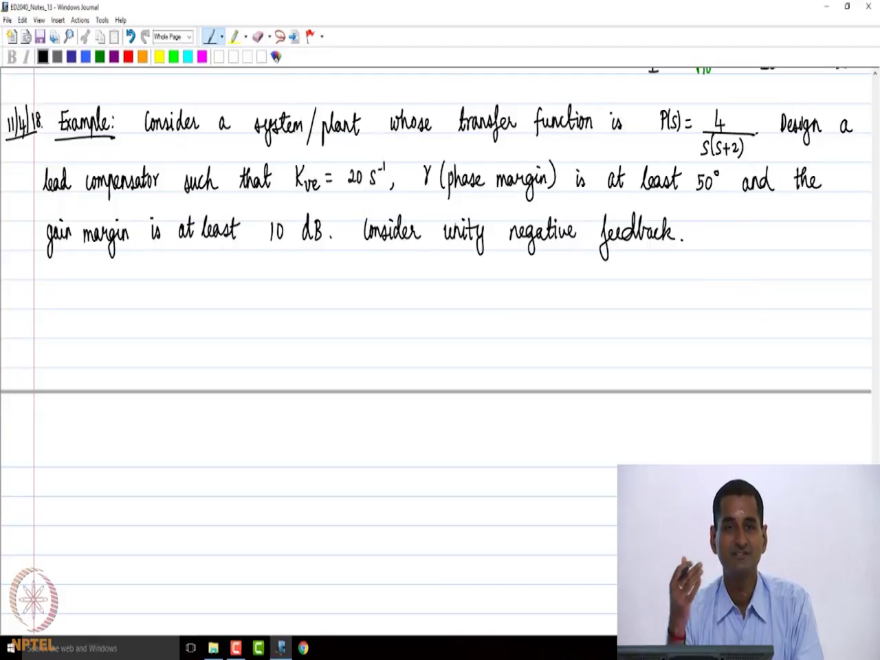 ED2040_Notes_13 - Windows Journal
File Edit View Insert Actions Tools Help
Whole Page
B I
11/4/18. Example: Consider a system/plant whose transfer function is P(s) = 4 / s(s+2). Design a
lead compensator such that Kve = 20 s⁻¹, γ (phase margin) is at least 50° and the
gain margin is at least 10 dB. Consider unity negative feedback.
NPTEL
the web and Windows